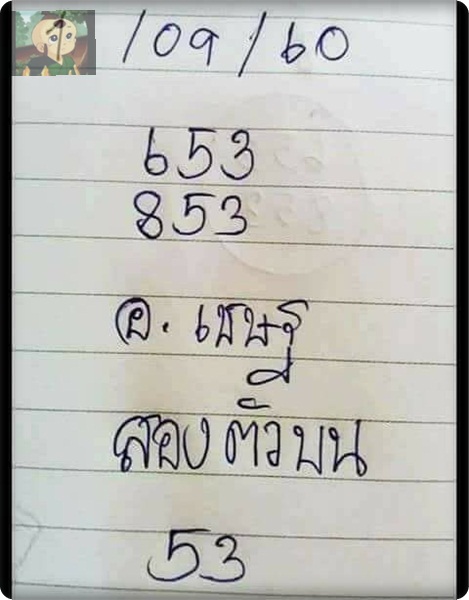 /09/60
653
853
อ. เชษฐ์
สองตัวบน
53